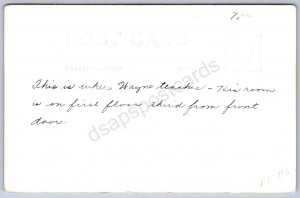 7
POST CARD
This is where Wayne teaches - His room
is on first floor, third from front
door.
dsapspostcards